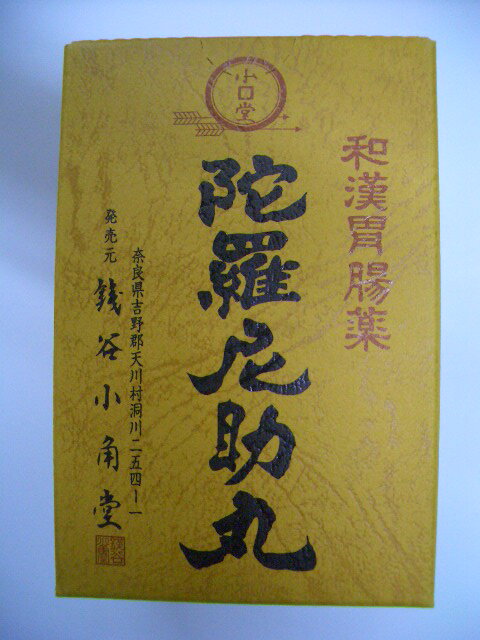 小角堂
和漢胃腸薬
陀羅尼助丸
奈良県吉野郡天川村洞川二五四ー一
発売元 銭谷小角堂